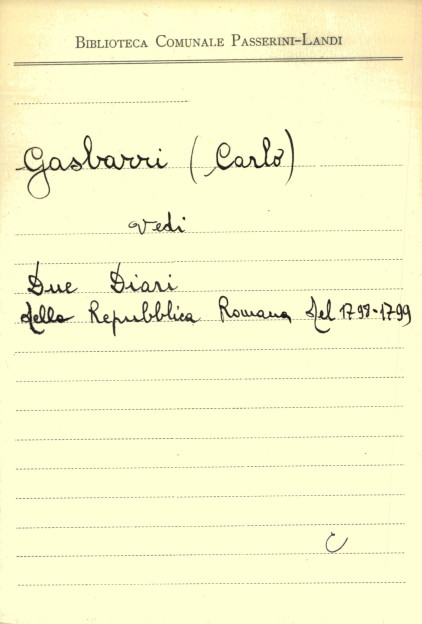 Biblioteca Comunale Passerini-Landi
Gasbarri (Carlo)
vedi
Due Diari
della Repubblica Romana del 1798-1799
C